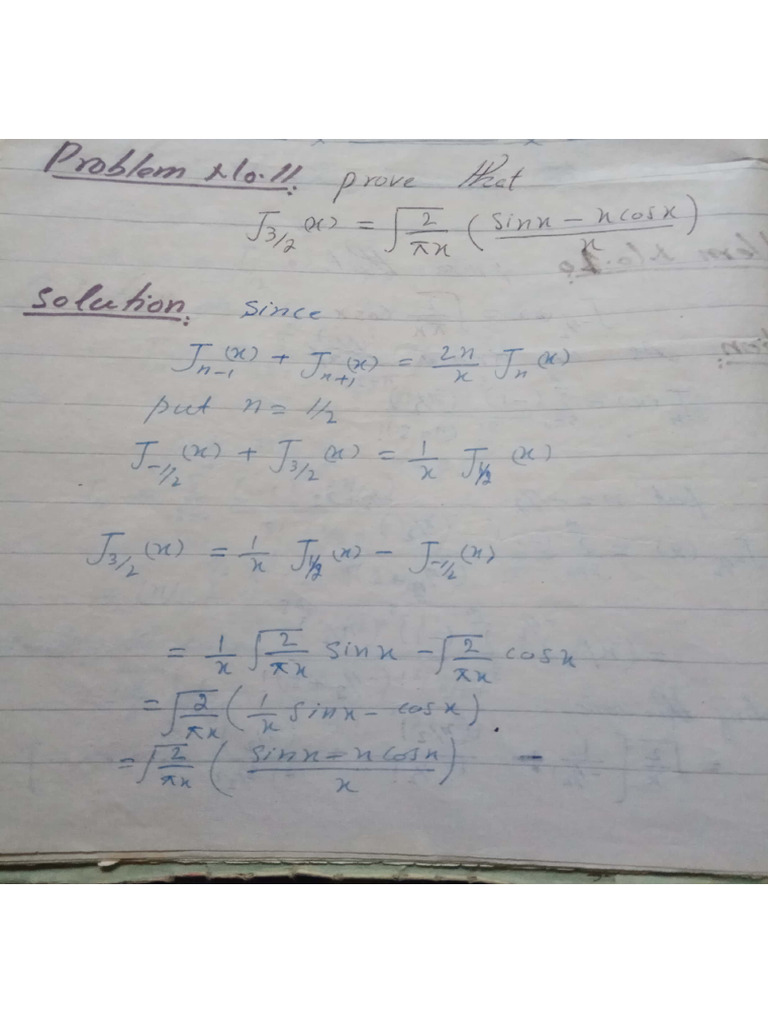 Problem No.11: prove that
J_{3/2}(x) = √(2/πx) ((sinx - xcosx)/x)
Solution: since
J_{n-1}(x) + J_{n+1}(x) = 2n/x J_n(x)
put n = 1/2
J_{-1/2}(x) + J_{3/2}(x) = 1/x J_{1/2}(x)
J_{3/2}(x) = 1/x J_{1/2}(x) - J_{-1/2}(x)
= 1/x √(2/πx) sinx - √(2/πx) cosx
= √(2/πx) (1/x sinx - cosx)
= √(2/πx) ((sinx - xcosx)/x)